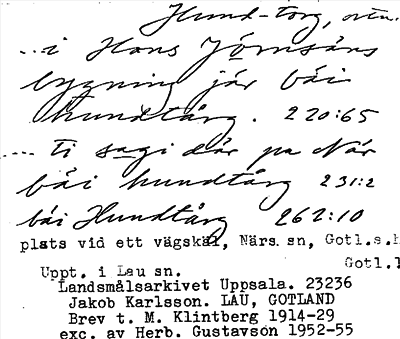 Hund-torg, ortn.
...i Hans Jörnsärs
bygning jär bäi
hundtårg. 220:65
.... ti sagi där pa När
bäi hundtårg 231:2
bäi Hundtårg 262:10
plats vid ett vägskäl, Närs sn, Gotl.s.h
Gotl.l
Uppt. i Lau sn.
Landsmålsarkivet Uppsala. 23236
Jakob Karlsson. LAU, GOTLAND
Brev t. M. Klintberg 1914-29
exc. av Herb. Gustavson 1952-55